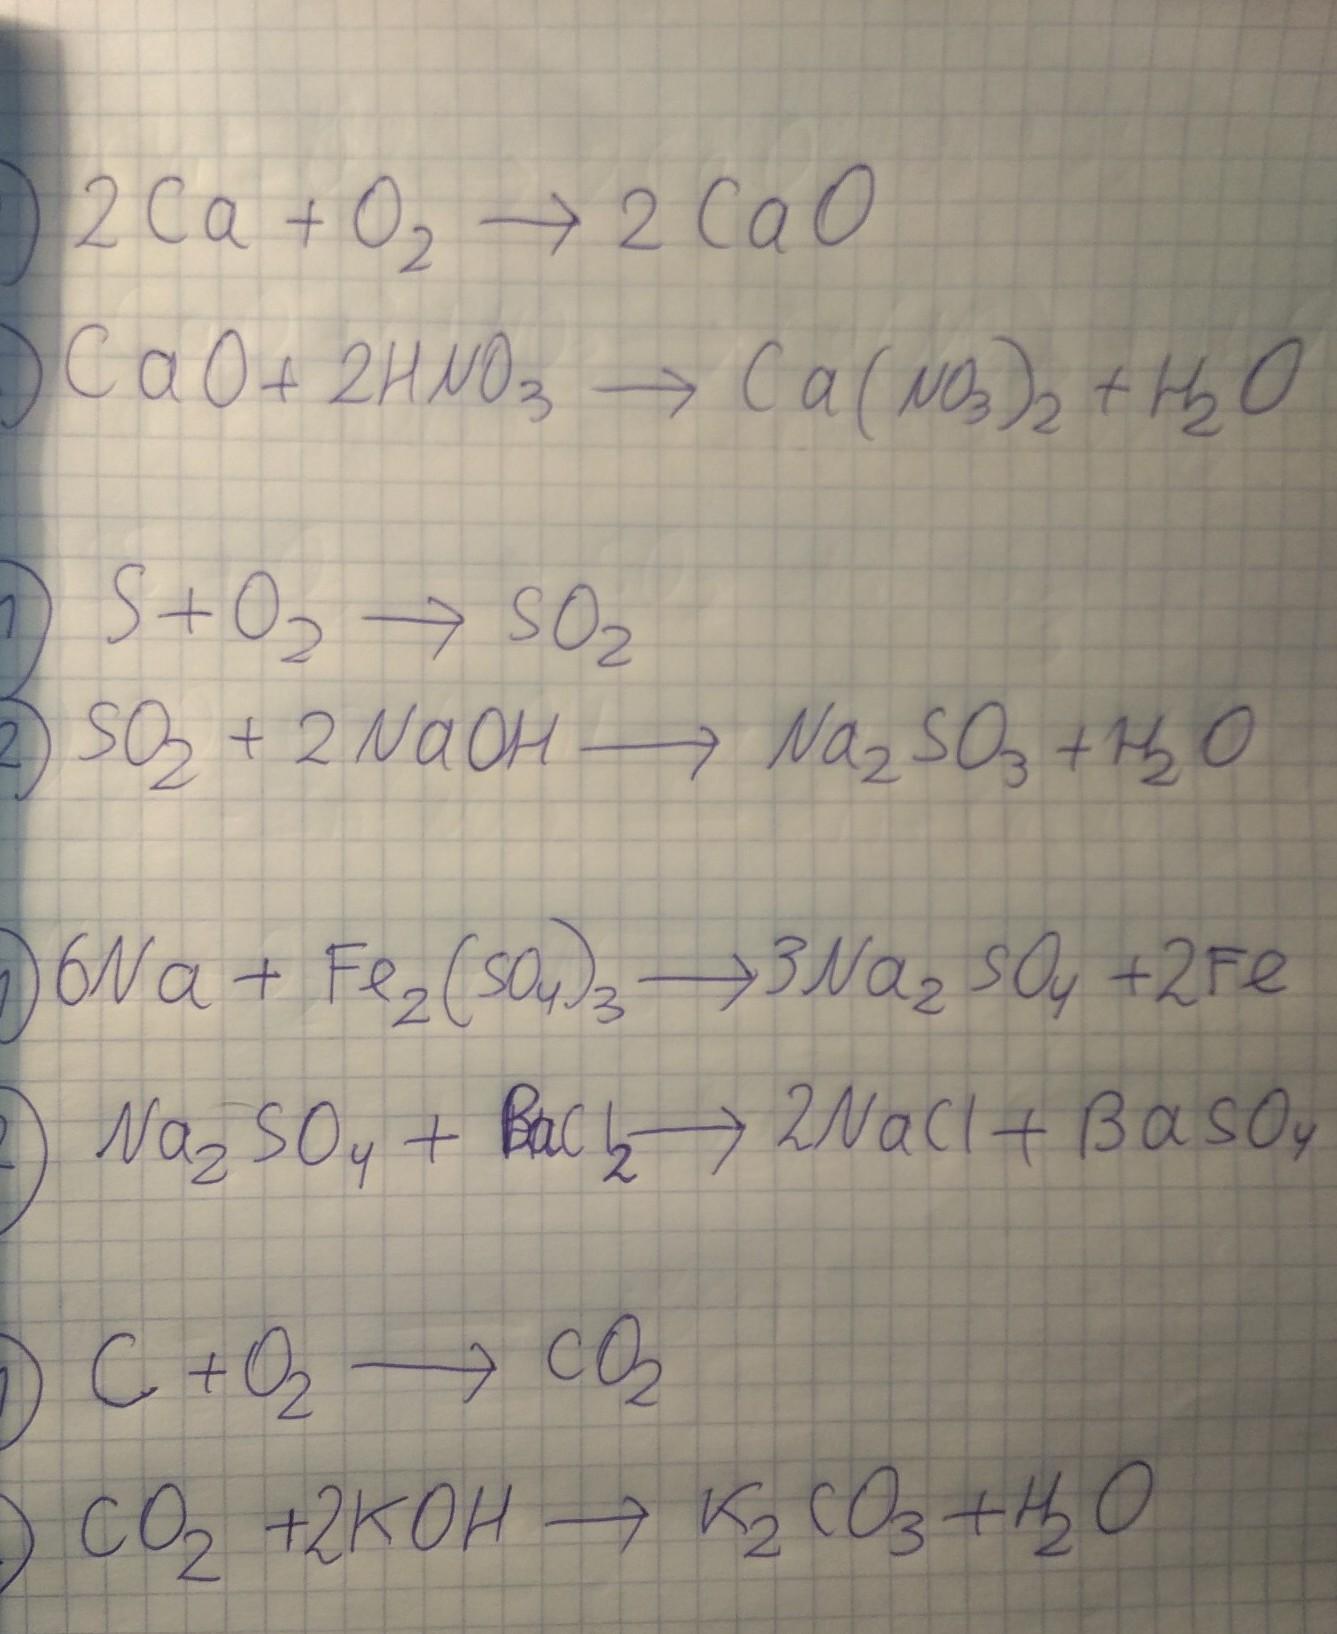 ) 2Ca + O₂ → 2CaO
) CaO + 2HNO₃ → Ca(NO₃)₂ + H₂O
1) S + O₂ → SO₂
2) SO₂ + 2NaOH → Na₂SO₃ + H₂O
1) 6Na + Fe₂(SO₄)₃ → 3Na₂SO₄ + 2Fe
2) Na₂SO₄ + BaCl₂ → 2NaCl + BaSO₄
1) C + O₂ → CO₂
) CO₂ + 2KOH → K₂CO₃ + H₂O